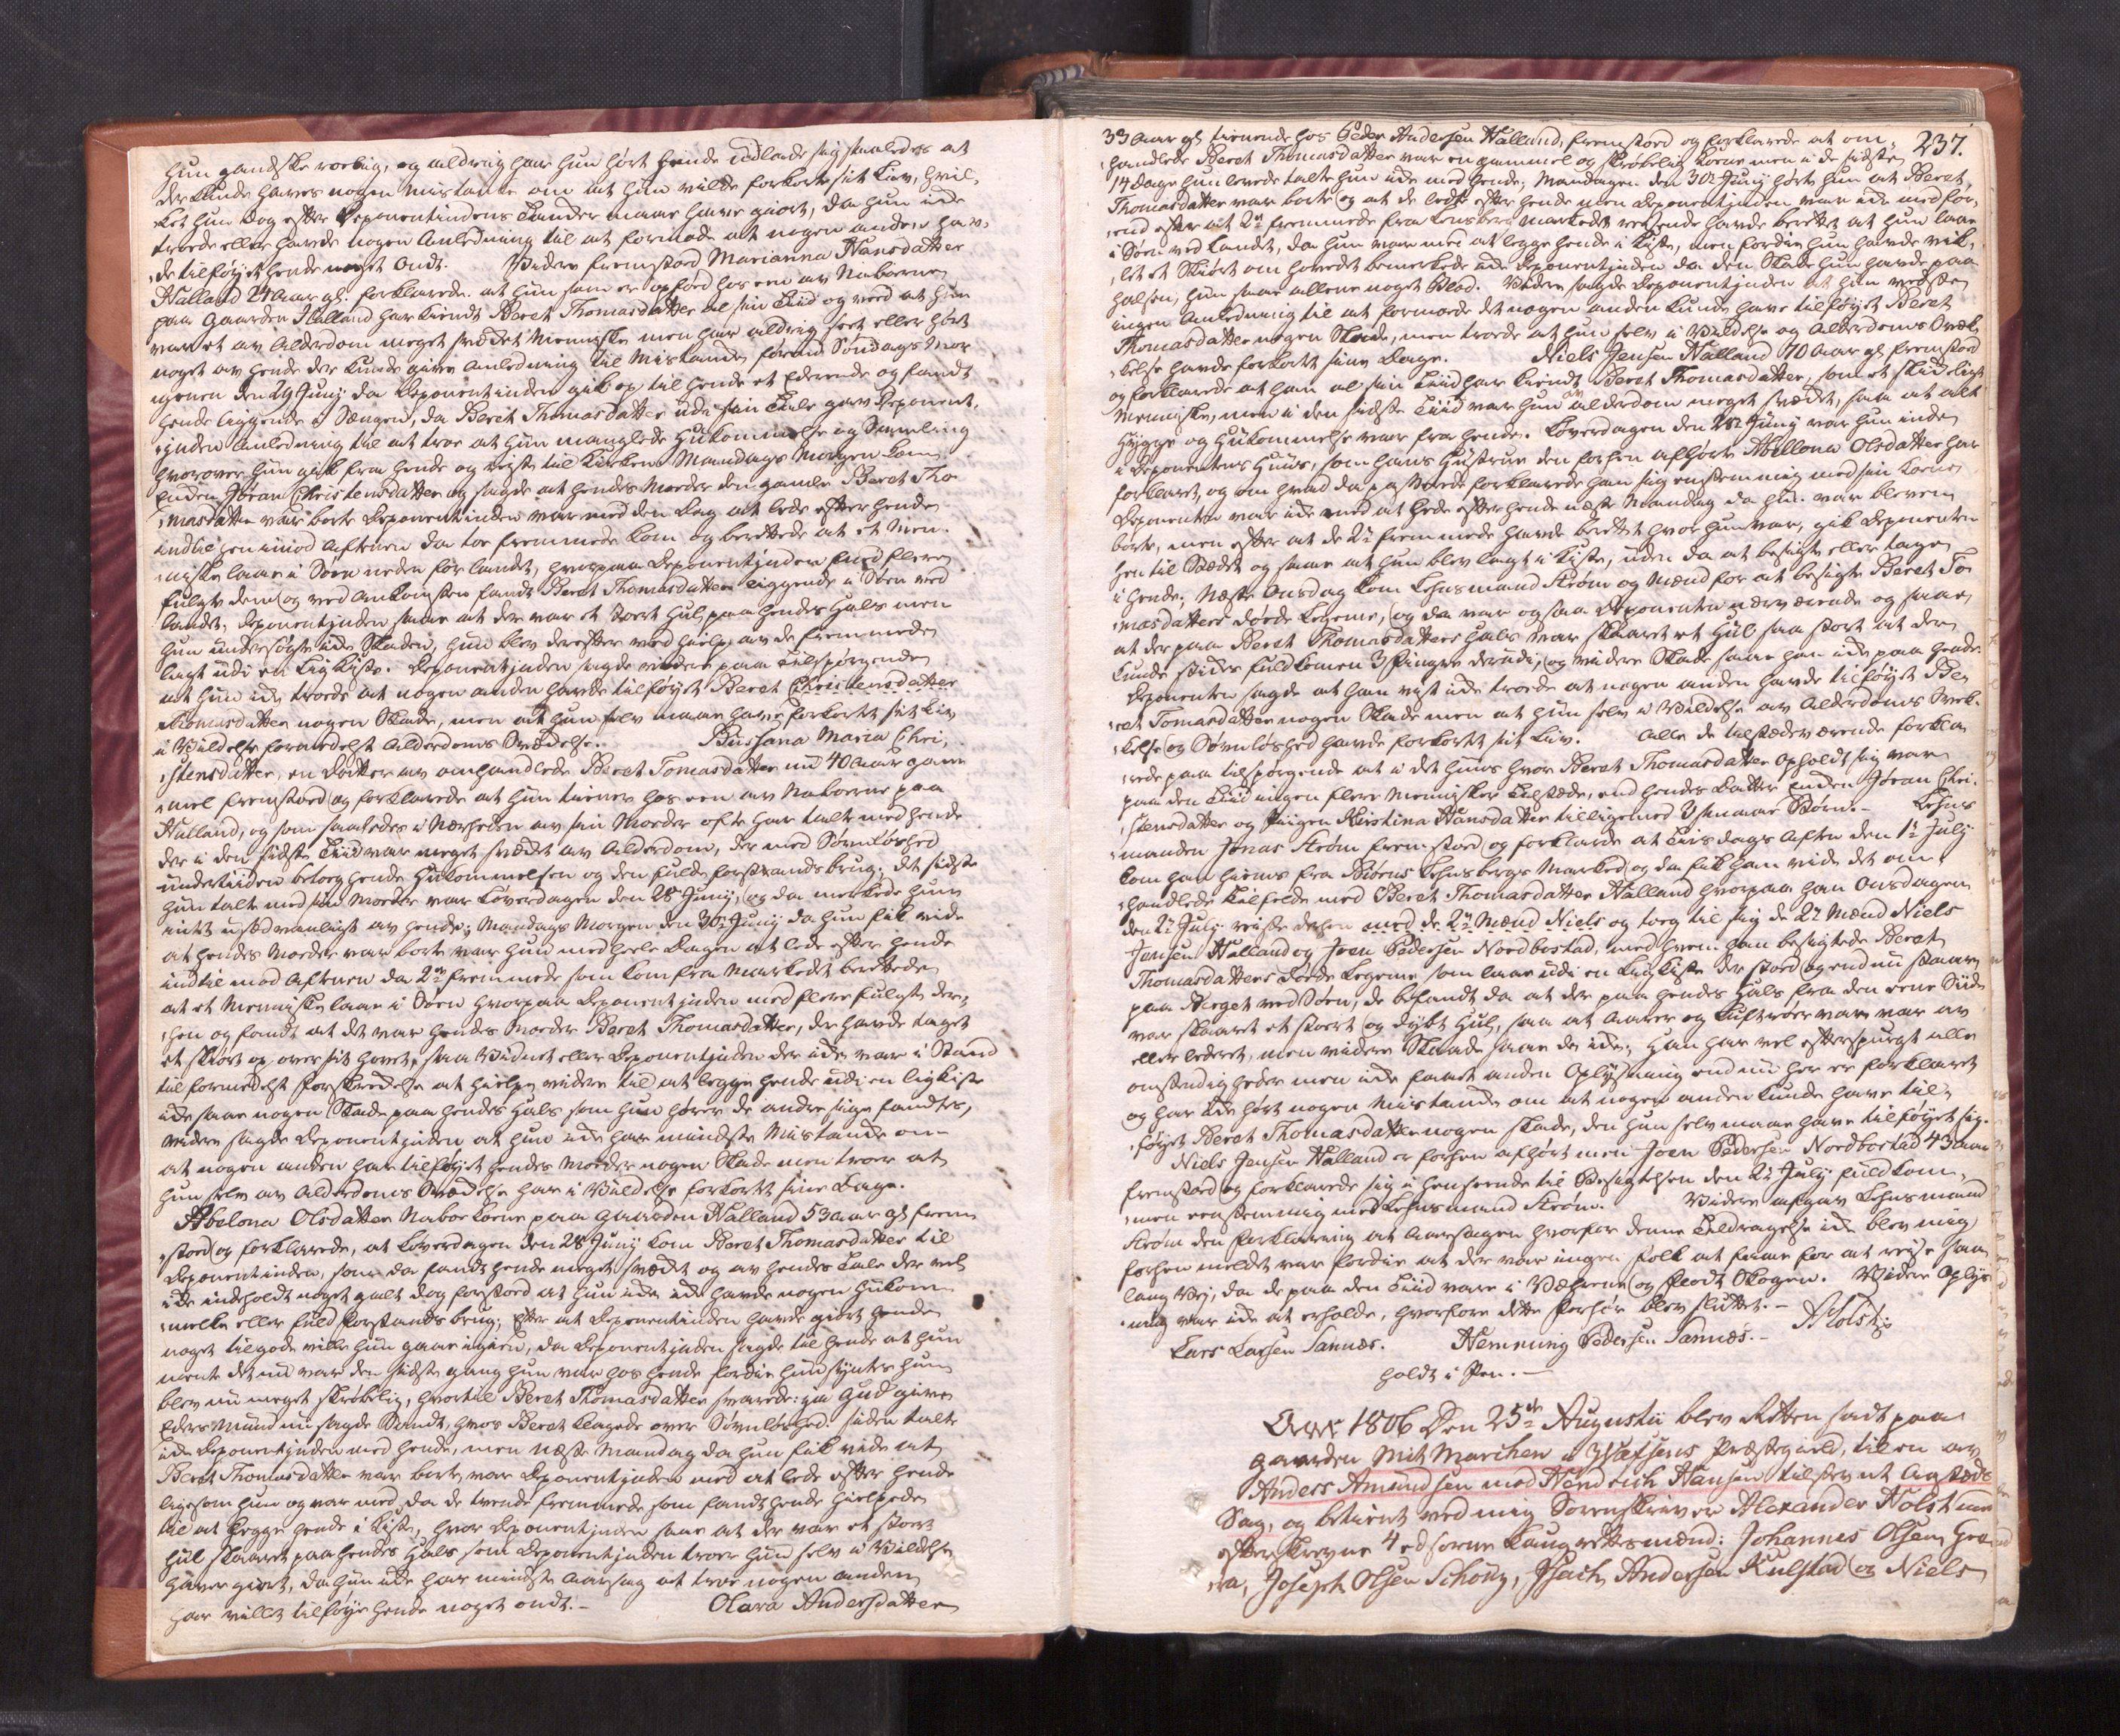 hun gandske roelig, og aldrig har hun hørt hende udlade sig saaledes at
der kunde haves nogen Mistanke om at hun vilde forkorte sit Liv, hvil-
ket hun dog efter Deponentindens Tanker maae have giort, da hun ikke
troede eller havde nogen Anledning til at formode at nogen anden hav-
de tilføyet hende noget Ondt. Videre fremstoed Marianna Hansdatter
Halland 24 Aar gl. forklarede at hun som er opfød hos een av Naboerne
paa Gaarden Halland har kiendt Beret Thomasdatter al sin Tiid og veed at hun
var et av Alderdom meget svækket Menneske men har aldrig seet eller hørt
noget av hende der kunde give Anledning til Mistanke førend Søndags Mor
genen den 29 Junj da Deponentinden gik op til hende et Ærende og fandt
hende liggende i Sengen, da Beret Thomasdatter udi sin Tale gav Deponent-
inden Anledning til at troe at hun manglede Hukommelse og Samling
hvorover hun gik fra hende og reiste til Kirken. Mandags Morgen kom
Enken Jøran Christensdatter og sagde at hendes Moder den gamle Beret Tho
masdatter var borte Deponentinden var med den Dag at lede efter hende
indtil hen imod Aftenen da toe fremmede kom og berettede at et Men-
niske laae i Søen neden for landet, hvorpaa Deponentinden med flere
fulgte dem og ved Ankomsten fandt Beret Thomasdatter liggende i Søen ved
landet, Deponentinden saae at der var et stort Hul paa hendes Hals men
hun undersøgte ikke Skaden, hun blev derefter ved hielp av de fremmede
lagt udi en Ligkiste. Deponentinden sagde videre paa tilspørgende
at hun ikke troede at nogen anden havde tilføyet Beret Christensdatter
Thomasdatter nogen Skade, men at hun selv maae have forkortet sit Liv
i Vildelse formedelst Alderdoms Svækkelse. Bussana Maria Chri-
stensdatter, en Datter av omhandlede Beret Tomasdatter nu 40 Aar gam
mel fremstoed og forklarede at hun tiener hos een av Naboerne paa
Halland, og som saaledes i Nærheden av sin Moeder ofte har talt med hende
der i den sidste Tiid var meget svækket av Alderdom, der med Søvnløshed
undertiiden betog hende Hukommelsen og den fulde forstands brug; det sidste
hun talte med sin Moeder var Løverdagen den 28 Junj, og da merkede hun
intet usædvanligt av hende; Mandags Morgen den 30te Junj da hun fik vide
at hendes Moeder var borte, var hun med heele Dagen at lede efter hende
indtil mod Aftenen da 2de fremmede som kom fra Markedet berettede
at et Menniske laae i Søen hvorpaa Deponentinden med flere fulgte der-
hen og fandt at det var hendes Moeder Beret Thomasdatter, der havde taget
et Skiørt op over sit hovet, saa Vidnet eller Deponentinden der ikke var i Stand
til formedelst forskrækkelse at hielpe videre til at legge hende udi en ligkiste
ikke saae nogen Skade paa hendes Hals som hun hører de andre sige fandtes,
videre sagde Deponentinden at hun ikke har mindste Mistanke om
at nogen anden har tilføyet hendes Moeder nogen Skade men troer at
hun selv av Alderdoms Svækkelse har i Vildelse forkortet sine Dage.
Abelona Olsdatter Naboe Kone paa Gaarden Halland 53 Aar gl frem
stoed og forklarede, at Løverdagen den 28 Junj kom Beret Thomasdatter til
Deponentinden, som da fandt hende meget svækket og av hendes Tale der vel
ikke indholdt noget galt dog forstoed at hun ikke havde nogen Hukom
melse eller fuld forstands brug; Efter at Deponentinden havde giort hende
noget tilgode ville hun gaae igien, da Deponentinden sagde til hende at hun
mente det nu var den sidste gang hun var hos hende fordie hun syntes hun
blev nu meget skrøbelig, hvortil Beret Thomasdatter svarede: ja Gud give
Eders Mund nu sagde Sandt, hvor Beret klagede over Søvnløshed. siden talte
ikke Deponentinden med hende, men næste Mandag da hun fik vide at
Beret Thomasdatter var borte, var Deponentinden med at lede efter hende
ligesom hun og var med, da de tvende fremmede som fandt hende hielpede
til at legge hende i Kiste, hvor Deponentinden saae at der var et stort
hul skaaret paa hendes Hals som Deponentinden troer hun selv i Vildelse
haver giort, da hun ikke har mindste Aarsag at troe nogen anden
har villet tilføye hende noget ondt.- Olava Andersdatter
237.
33 Aar gl tienende hos Peder Andersen Halland, fremstoed og forklarede at om-
handlede Beret Thomasdatter var en gammel og skrøbelig Kone men i de sidste
14 dage hun levede talte hun ikke med hende; Mandagen den 30te Junj hørte hun at Beret
Thomasdatter var borte og at de ledte efter hende men Deponentinden var ikke med før-
end efter at 2de fremmede fra Lensberg Markedet reisende havde berettet at hun laae
i Søen ved landet, da hun var med at legge hende i Kiste, men fordie hun havde vik-
let et Skiørt om hovedet bemerkede ikke Deponentinden da den Skade hun havde paa
halsen, hun saae allene noget Blod. Videre sagde Deponentinden at hun vedste
ingen Anledning til at formode det nogen anden kunde have tilføyet Beret
Thomasdatter nogen Skade, men troede at hun selv i Vildelse og Alderdoms Svæk
kelse havde forkortet sine Dage. Niels Jensen Halland 70 Aar gl fremstoed
og forklarede at han al sin Tiid har kiendt Beret Thomasdatter, som et skikkeligt
Menniske, men i den sidste Tiid var hun av Alderdom meget svækket, saa at alt
Hygge og Hukommelse var fra hende. Løverdagen den 28 Junj var hun inde
i Deponentens Huus, som hans Hustrue den forhen afhørte Abellona Olsdatter har
forklaret, og om hvad da passerede forklarede han sig enstemmig med sin Kone
Deponenten var ikke med at lede efter hende næste Mandag da hun var bleven
borte, men efter at de 2de fremmede havde berettet hvor hun var, gik Deponenten
hen til Stædet og saae at hun blev lagt i Kiste, uden da at besigte eller tage
i hende; Næste Onsdag kom Lehnsmand Strøm og Mænd for at besigte Beret To
masdatters døde Legeme, og da var og saa Deponenten nærværende og saae
at der paa Beret Thomasdatters Hals var skaaret et Hul saa stort at der
kunde stikkes fuldkommen 3 Fingre derudi, og videre Skade saae han ikke paa hende.
Deponenten sagde at han vist ikke troede at nogen anden havde tilføyet Be
ret Tomasdatter nogen Skade men at hun selv i Vildelse av Alderdoms Svek-
kelse og Søvnløshed havde forkortet sit Liv. Alle de tilstædeværende forkla
rede paa tilspørgende at i det Huus hvor Beret Thomasdatter opholdt sig var
paa den Tiid ingen flere Mennisker tilstæde, end hendes Datter Enken Jøran Chri-
stensdatter og Piigen Kirstina Hansdatter tilligemed 3 smaae Børn.- Lehns
manden Jonas Strøm fremstoed og forklarede at Tirsdags Aften den 1te Julj
kom han hiem fra Biørns Lehnsbergs Marked og da fik han vide det om-
handlede Tilfælde med Beret Thomasdatter Halland hvorpaa han Onsdagen
den 2de Julj reiste derhen med de 2de Mænd Niels og tog til sig de 2de Mænd Niels
Jensen Halland og Joen Pedersen Nordbostad, med hvem han besigtede Beret
Thomasdatters døde Legeme som laae udi en Ligkiste der stoed og endnu staar
paa Berget ved Søen, de befandt da at der paa hendes Hals fra den eene Siide
var skaaret et stort og dybt Hul, saa at Aarer og Luftrøer var av
eller lederet, men videre Skade saae de ikke; Han har vel efterspurgt alle
omstendigheder men ikke faaet anden Oplysning end nu her er forklaret
og har ikke hørt nogen Mistanke om at nogen anden kunde have til-
føyet Beret Thomasdatter nogen Skade, den hun selv maae have tilføyet sig.
Niels Jensen Halland er forhen afhørt men Joen Pedersen Nordbostad 43 Aar
fremstoed og forklarede sig i henseende til Besigtelsen den 2de Julj fuldkom-
men eenstemmig med Lehnsmand Strøm. Videre afgav Lehnsmand
Strøm den forklaring at Aarsagen hvorfor denne Tildragelse ikke blev mig
forhen meldet var fordie at der var ingen folk at faae for at reise saa
lang Vej, da de paa den Tiid vare i og Skogen. Videre Oplys
ning var ikke at erholde, hvorfore dette forhør blev sluttet.-
AHolst
Lars Larsen Sannes. Hemming Pedersen Sannæs.-
holdt i Pen.-
Aar 1806 Den 25de Augustii blev Retten sadt paa
gaarden Mit Marchen i Præstegield, til en av
Anders Amundsen mod Hendrich Hansen tilstevnt Aastæds
Sag, og betient ved mig Sorenskriver Alexander Holst med
efterskrevne 4 edsorne Laugrettesmænd: Johannes Olsen
Joseph Olsen Schong, Isach Andersen Kulstad og Niels